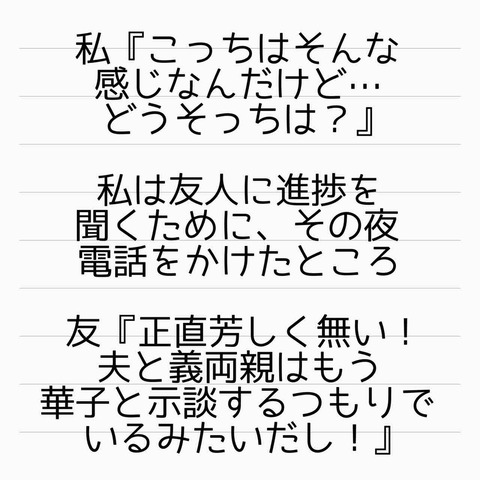 私『こっちはそんな
感じなんだけど…
どうそっちは？』
私は友人に進捗を
聞くために、その夜
電話をかけたところ
友『正直芳しく無い！
夫と義両親はもう
華子と示談するつもりで
いるみたいだし！』